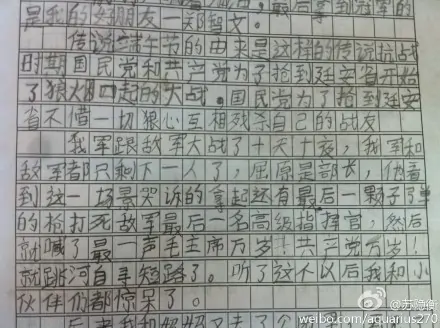 是我的好朋友一郑智文。
传说端午节的由来是这样的传说抗战
时期国民党和共产党为了抢到廷安省开始
了狼烟四起的大战。国民党为了抢到廷安
省不惜一切狠心互相残杀自己的战友
我军跟敌军大战了十天十夜，我军和
敌军都只剩下一人了，屈原是部长，他看
到这一场景哭诉的拿起还有最后一颗子弹
的枪打死敌军最后一名高级指挥官，然后
就喊了最一声毛主席万岁！共产党万岁！
就跳河自寻短路了。听了这个以后我和小
伙伴们都惊呆了。
@苏隐衡
weibo.com/aquarius270